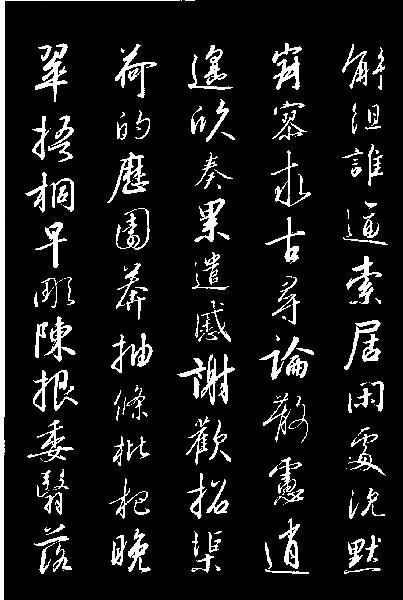 解組誰逼索居閑處沈默
寂寥求古尋論散慮逍
遙欣奏累遣慼謝歡招渠
荷的歷園莽抽條枇杷晚
翠梧桐早彫陳根委翳落